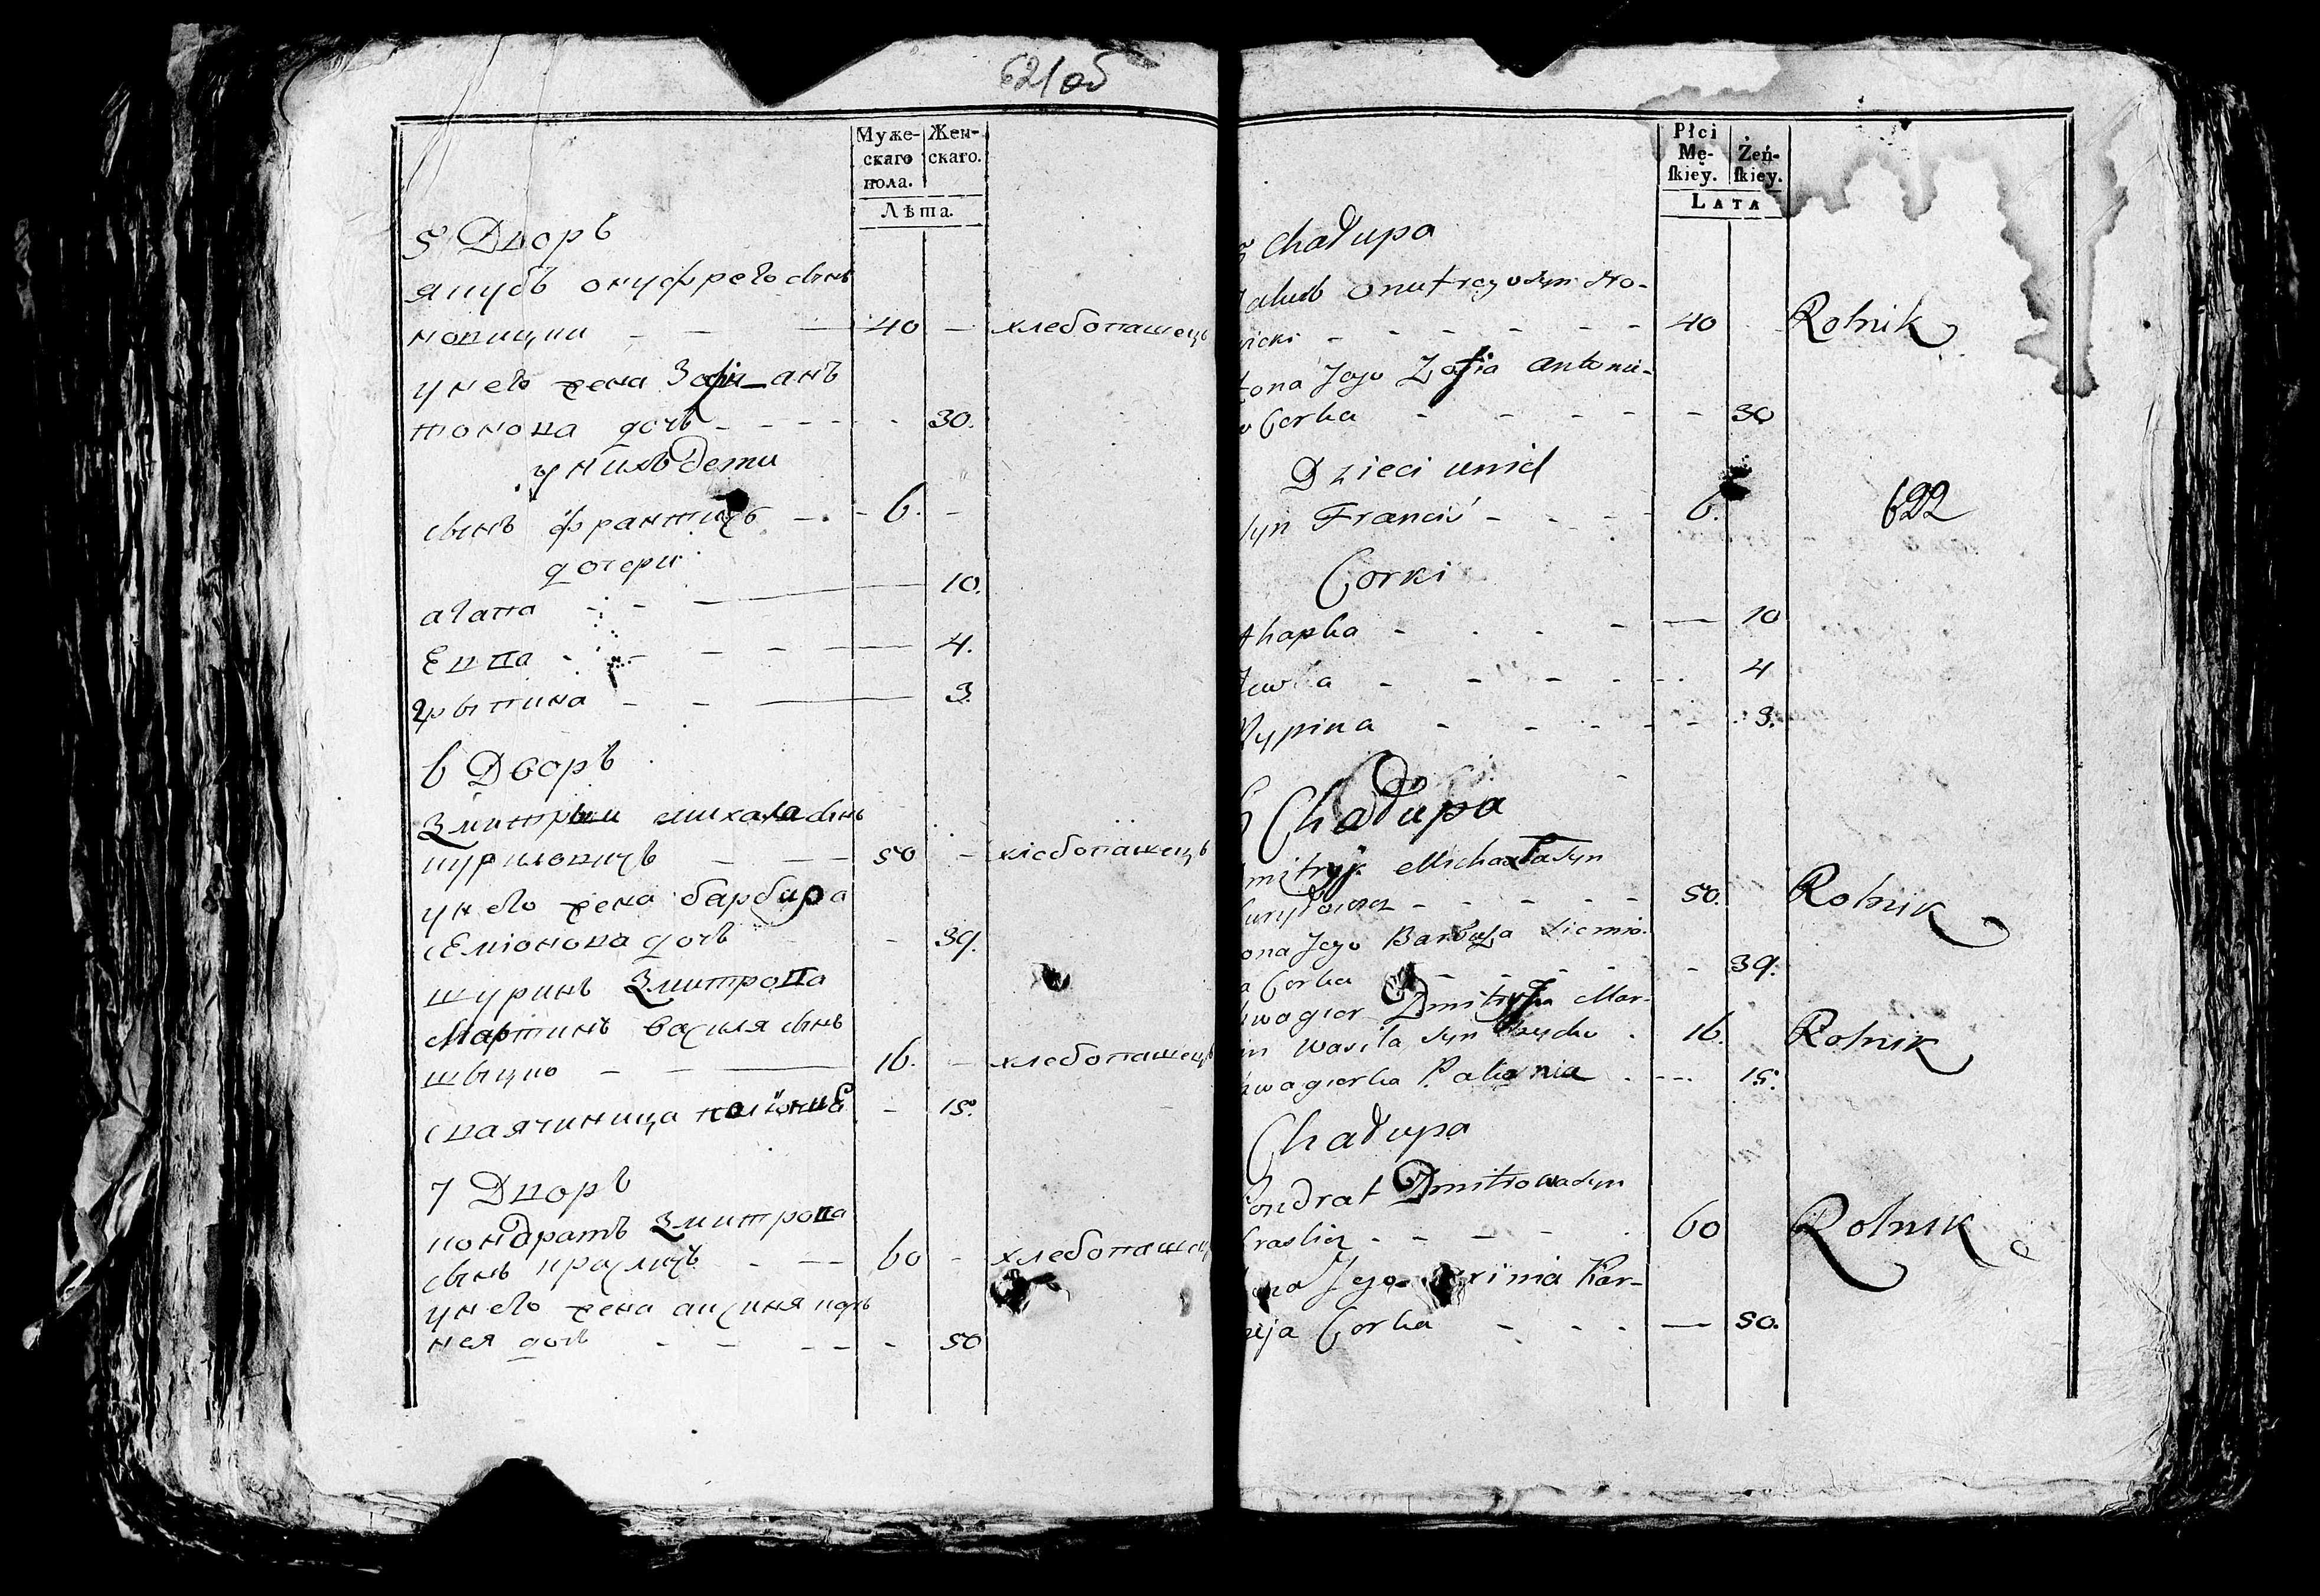 62/об
Муже-
скаго
пола.
Жен-
скаго.
Лѣта.
5 Дворъ
якубъ онуфрего сынъ
новицки - - - 40 - хлебопашецъ
унего жена Зофiя анъ
тонова дочъ - - - - 30.
унихъ Дети
сынъ францишъ - - 6. -
дочери
агапа - - - 10.
Евва - - - - 4.
грыпина - - - 3.
6 Дворъ
Змитрыи михала сынъ
курыловичъ - - - 50 - хлебопашецъ
унего жена барбара
семiонова дочъ - 39.
шуринъ Змитрова
Мартинъ василя сынъ
швыцко - - - 16. - хлебопашецъ
своячиница полонiя - 15.
7 Дворъ
кондратъ Змитрова
сынъ краслицъ - - - 60 - хлебопашец
унего жена аксиня кор
нея дочъ - - - - 50
Płci
Mę-
skiey.
Żeń-
skiey.
Lata
5 Chałupa
Jakub Onufrego syn No-
wicki - - - - - - 40 Rolnik
żona Jego Zofia Antonie-
w Corka - - - - - 30
Dzieci unich
622
syn Franciś - - - - 6.
Corki
Ahapka - - - - - 10
Jewka - - - - - 4
Rypina - - - - - 3.
6 Chałupa
mitryi Michała syn
Kuryłowicz - - - - - 50. Rolnik
żona Jego Barbara Siemio-
a Corka - - - - - 39.
szwagier Dmitryja Mar-
cin Wasila syn Szwycko - 16. Rolnik
szwagierka Palonia - - - 15.
Chałupa
Kondrat Dmitrowa syn
Kraslicz - - - - - 60 Rolnik
żona Jego xinia Kor-
neja Corka - - - - 50.